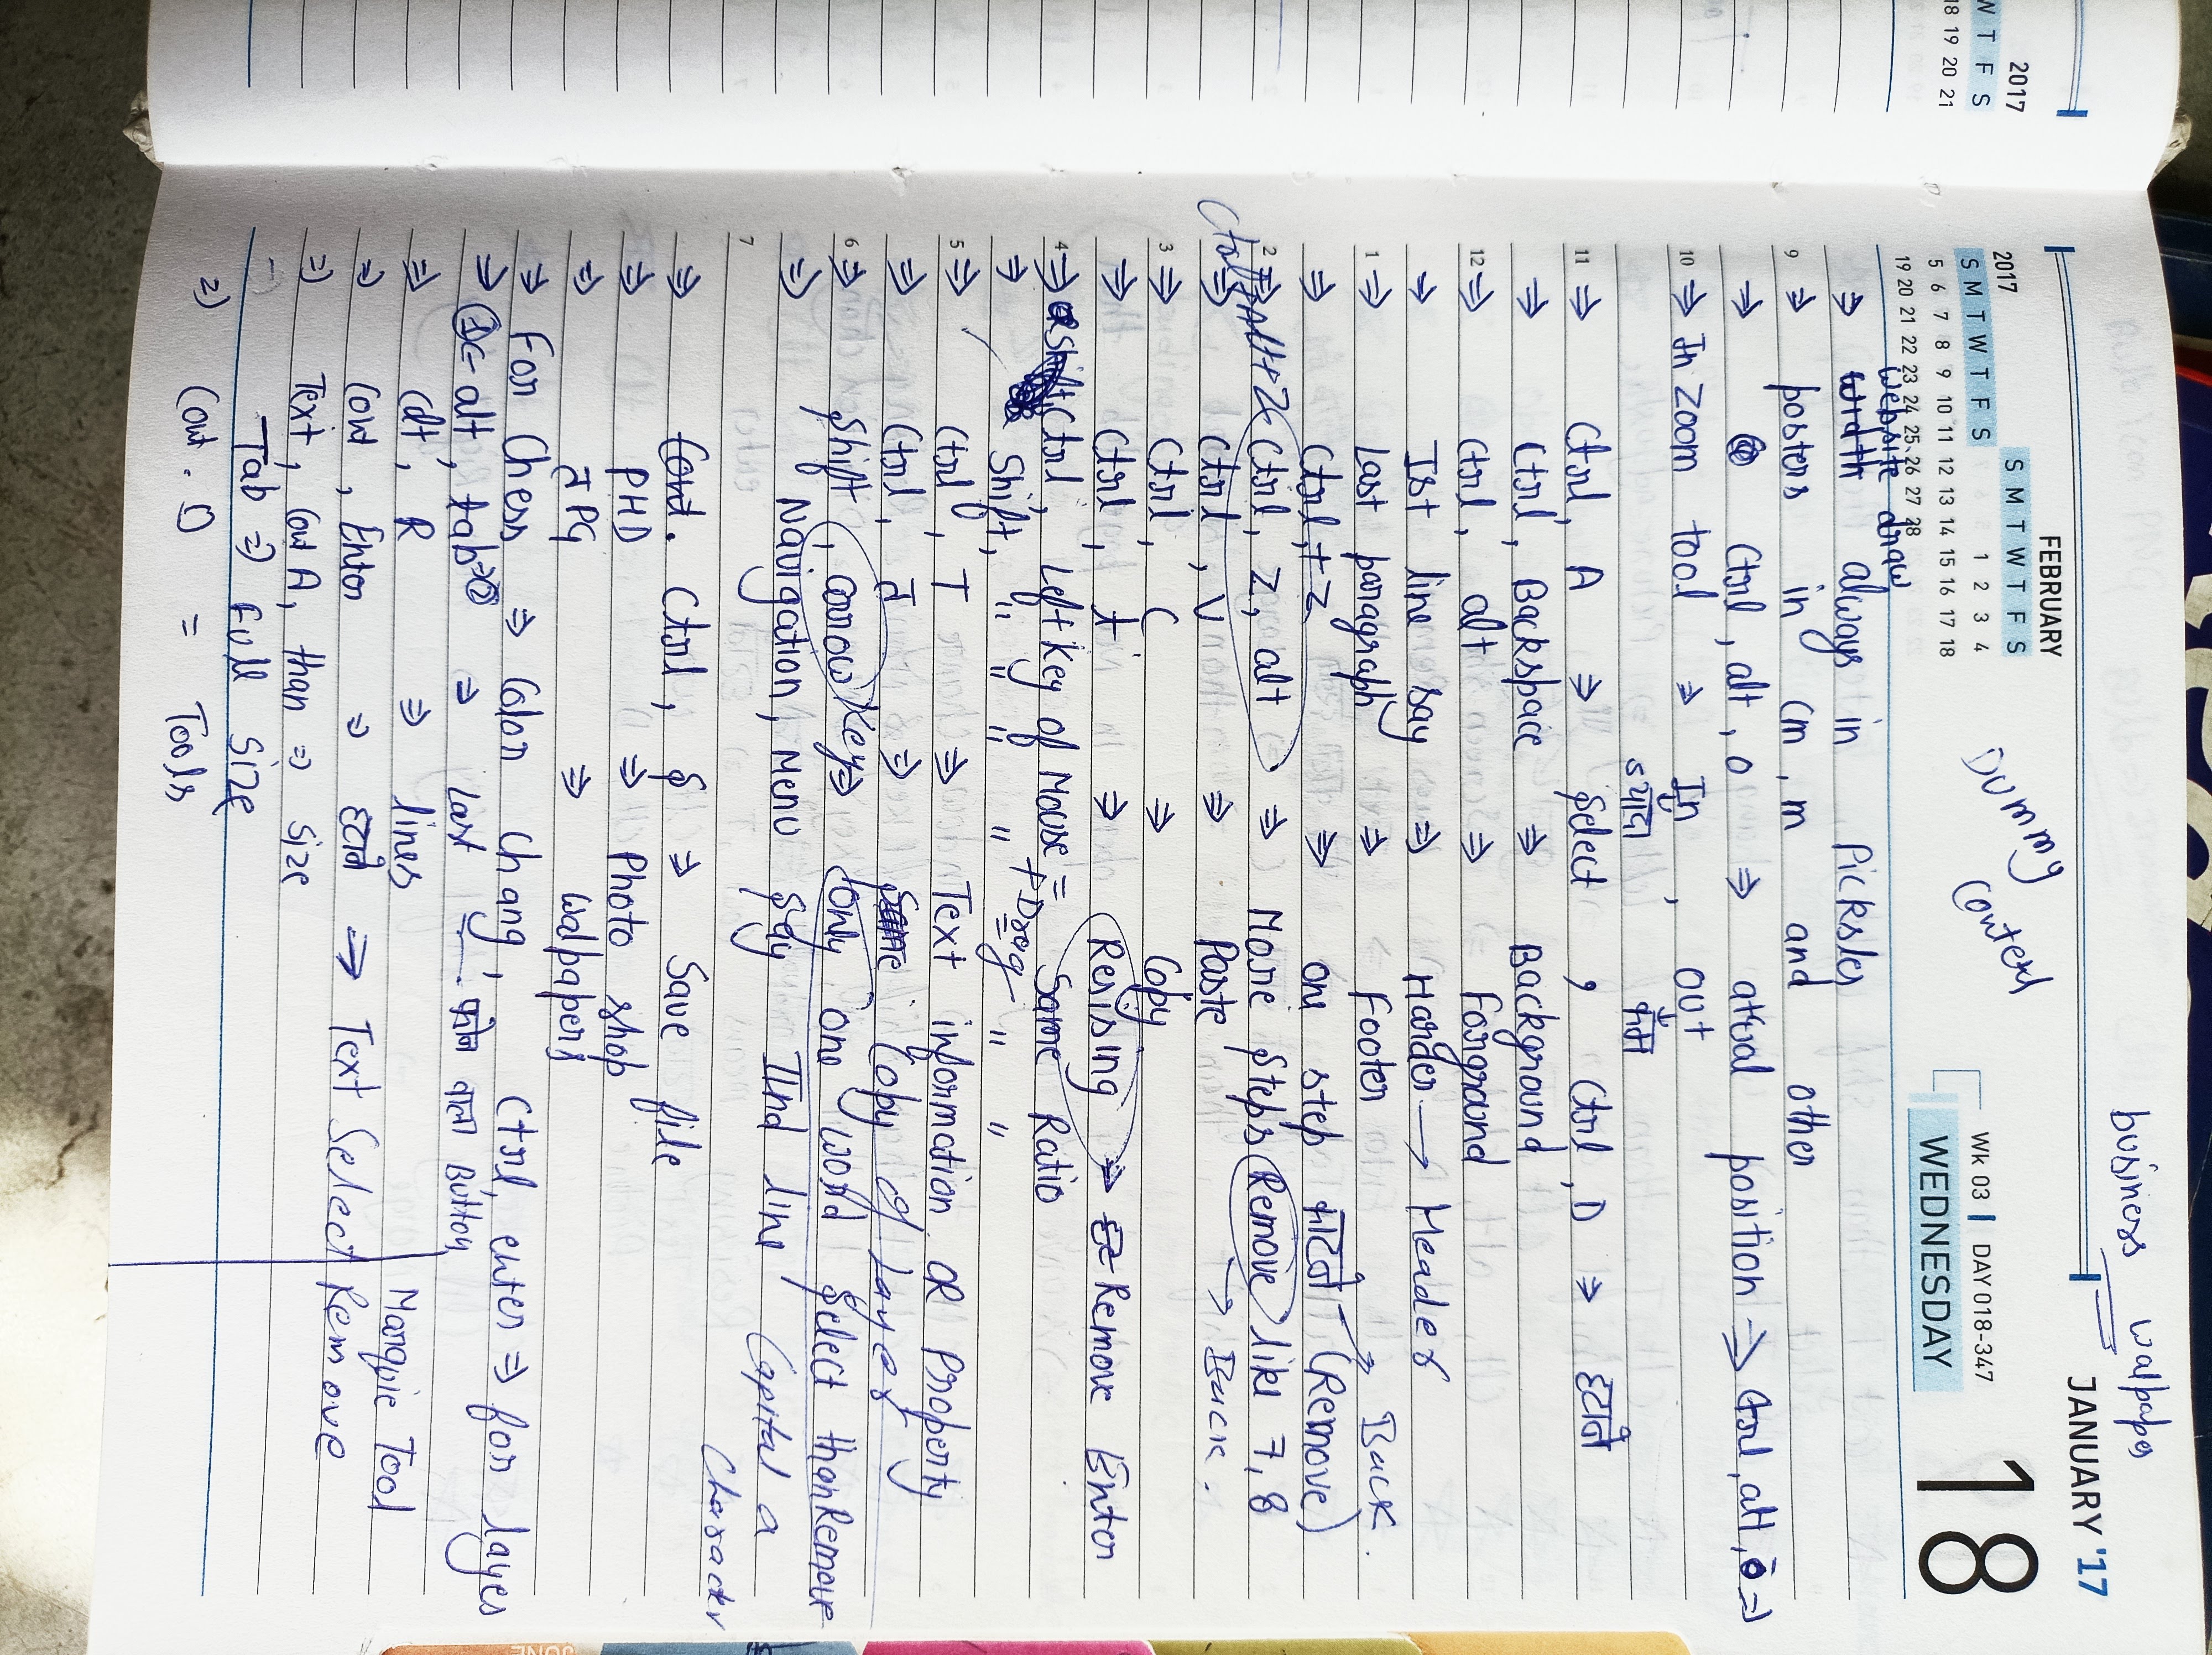 business walpaper
JANUARY '17
2017
W T F S
18 19 20 21
FEBRUARY
2017
S M T W T F S
S M T W T F S
1 2 3 4
5 6 7 8 9 10 11 12 13 14 15 16 17 18
19 20 21 22 23 24 25 26 27 28
Dummy
Wk 03 | DAY 018-347
WEDNESDAY
18
website draw
⇒ width always in Picksles
9 ⇒ posters in Cm, m and other
⇒ Ctrl, alt, 0 ⇒ position ⇒ Ctrl, alt, 0 ⇒
10 ⇒ In Zoom tool ⇒ In, OUT
ज्यादा कम
11 ⇒ Ctrl, A ⇒ Select, Ctrl, D ⇒ हटाने
⇒ Ctrl, Backspace ⇒ Background
12 ⇒ Ctrl, alt ⇒ Forground
⇒ Ist line say ⇒ Harder → Header
1 ⇒ Last paragraph ⇒ Footer
→ Back.
⇒ Ctrl,+Z ⇒ one step काटने (Remove)
2 ⇒ Ctrl, Z, alt ⇒ More Steps Remove like 7, 8
Ctrl+Alt+Z
→ Back.
⇒ Ctrl, V ⇒ Paste
3 ⇒ Ctrl, C ⇒ Copy
⇒ Ctrl, t ⇒ Resising ⇒ Remove Enter
4 ⇒ Shift, Ctrl, Left Key of Mouse = Same Ratio
+ Drag
⇒ Shift, " " " " " "
5 ⇒ Ctrl, T ⇒ Text information OR Property
⇒ Ctrl, J ⇒ Same Copy of Layer
6 ⇒ Shift, arrow Key ⇒ Only one word Select than Remove
⇒ Navigation, Menu Say IInd line Capital a
7
Character
⇒ Cont. Ctrl, S ⇒ Save file
⇒ PHD ⇒ Photo shop
⇒ JPG ⇒ Walpapers
⇒ For Chess ⇒ Color Chang, Ctrl, enter ⇒ for layes
⇒ ① ← alt, tab ⇒ ② ⇒ Last फोन वाला Button
⇒ R ⇒ lines
Marquie Tool
⇒ Cont, Enter ⇒ हटाने → Text Select Remove
⇒ Text, Cont A, than ⇒ Size
Tab ⇒ Full Size
⇒ Cont. D = Tools